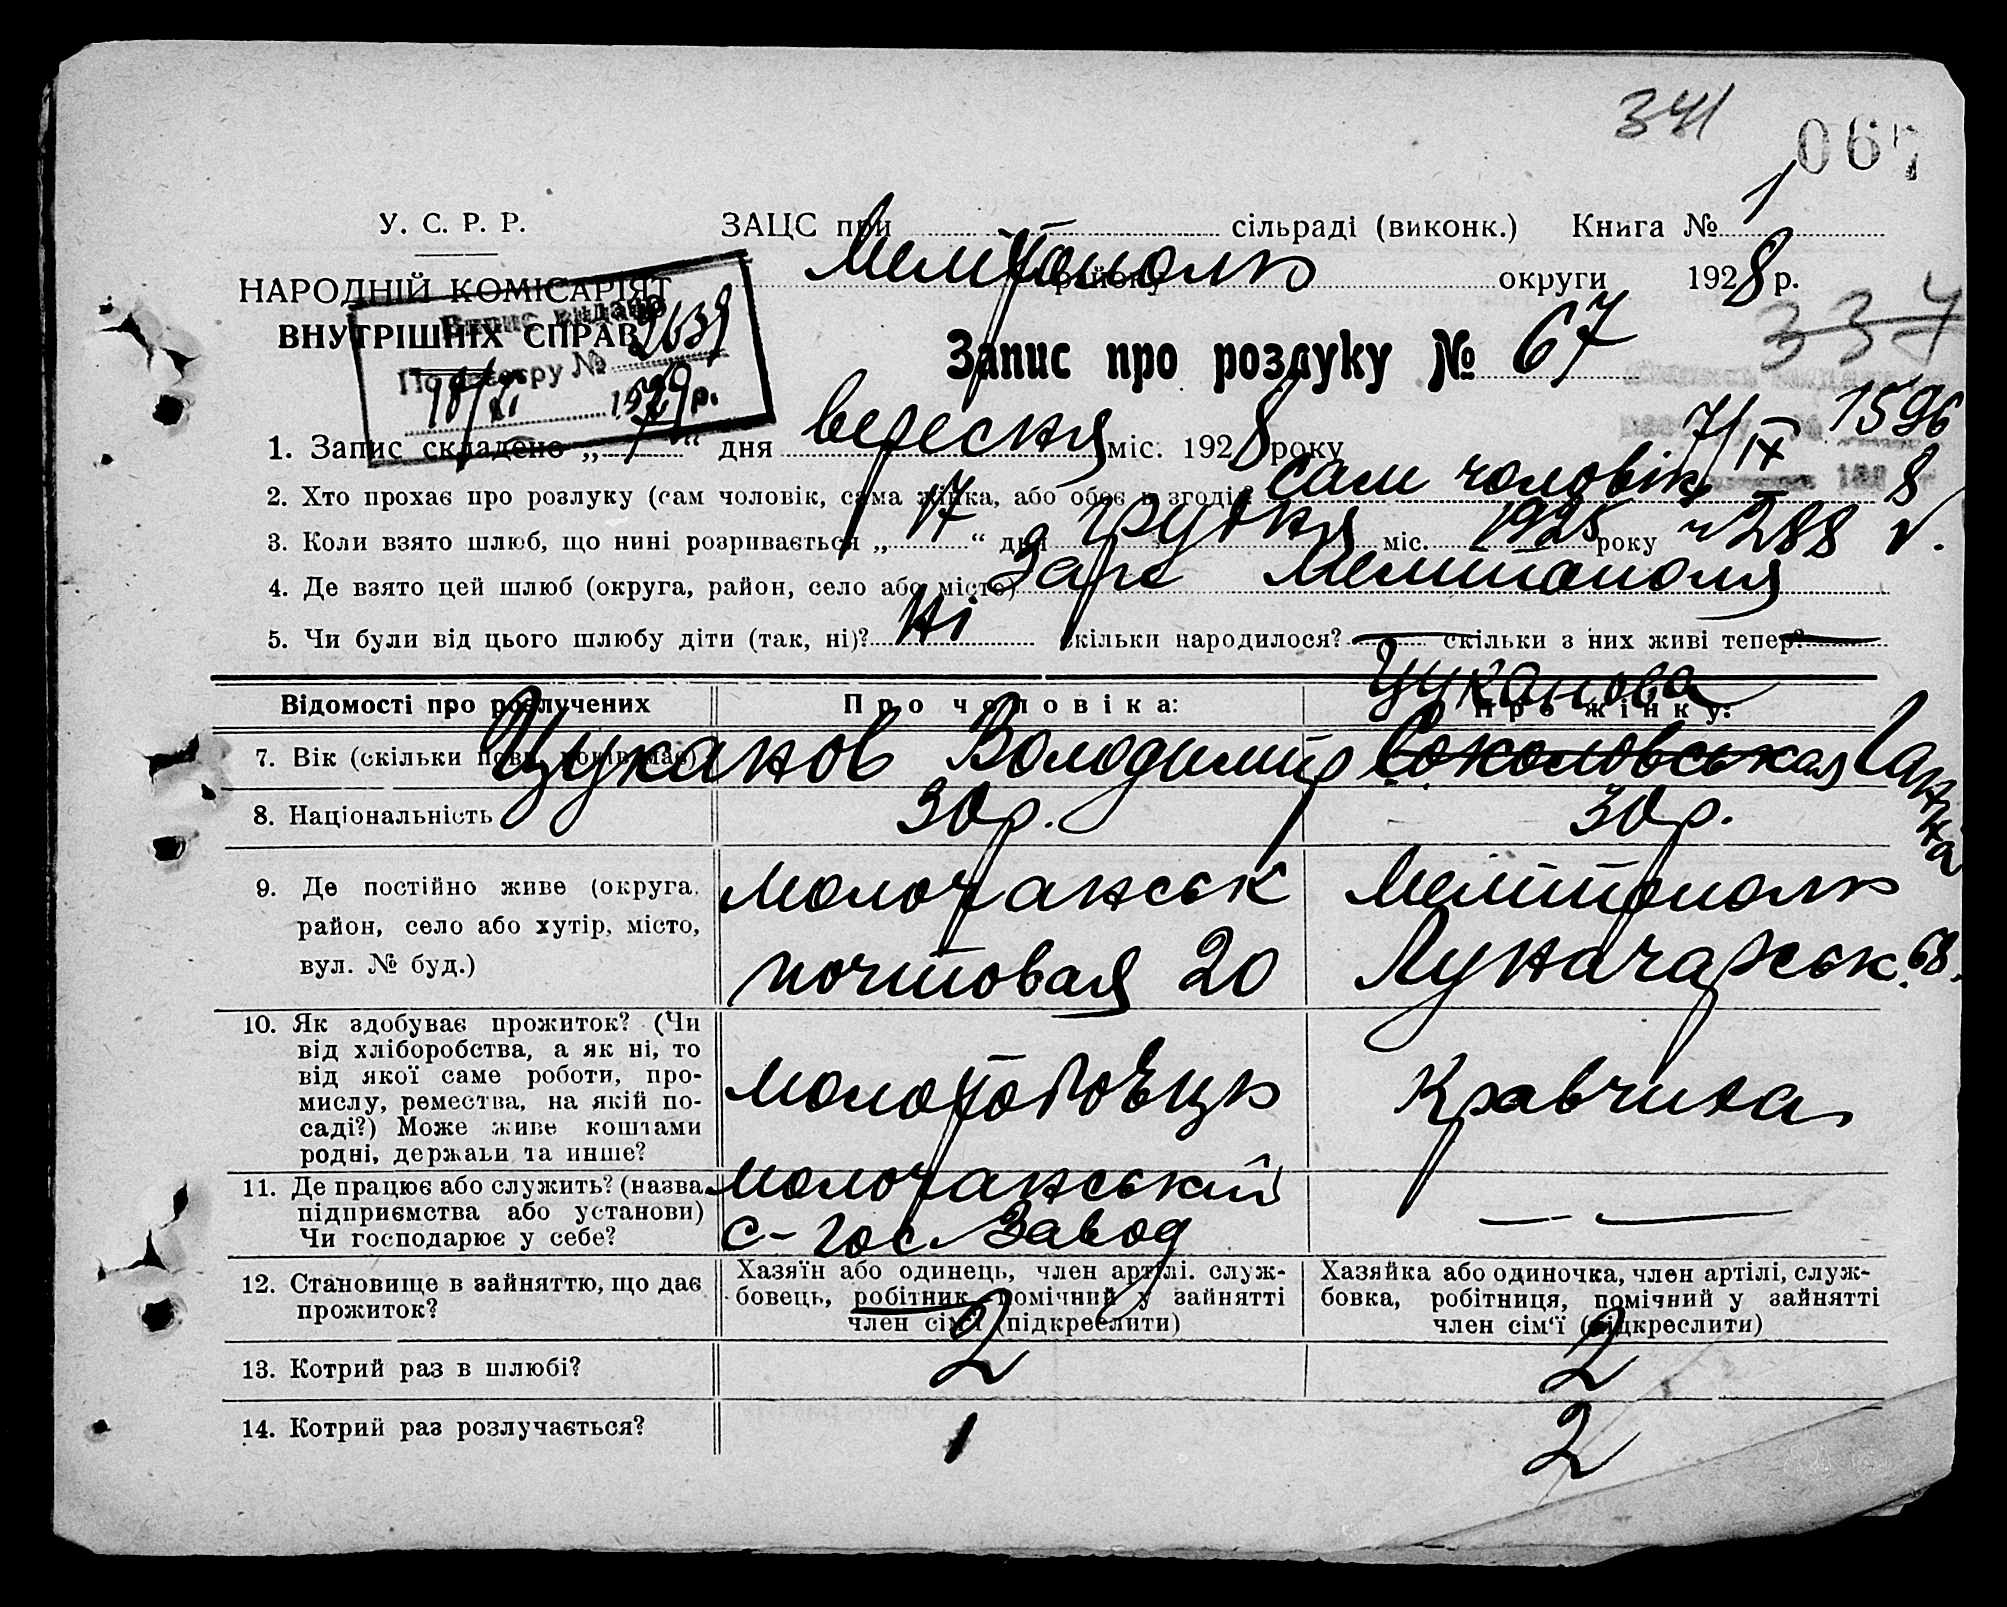 341
067
У. С. Р. Р.
ЗАЦС при сільраді (виконк.) Книга № 1
НАРОДНІЙ КОМІСАРІЯТ
ВНУТРІШНІХ СПРАВ
Мелітополь району округи 1928 р.
Випис видано
По реєстру № 2639
18/XI 1929 р.
Запис про розлуку № 67
337
7/IX 1596
8
1. Запис складено „7“ дня вересня міс. 1928 року
2. Хто прохає про розлуку (сам чоловік, сама жінка, або обоє в згоді)? сам чоловік
3. Коли взято шлюб, що нині розривається „17“ дня грудня міс. 1925 року 288
4. Де взято цей шлюб (округа, район, село або місто) Загс Мелитополя
5. Чи були від цього шлюбу діти (так, ні)? Ні скільки народилося? — скільки з них живі тепер? —
Відомості про розлучених
Про чоловіка:
Про жінку:
Цуканова
Цуканов Володимир
Соколовськая Ганна
7. Вік (скільки повн. років має)
30 р.
30 р.
8. Національність
9. Де постійно живе (округа, район, село або хутір, місто, вул. № буд.)
Молочанськ
почтовая 20
Мелітополь
Луначарськ. 68.
10. Як здобуває прожиток? (Чи
від хліборобства, а як ні, то
від якої саме роботи, про-
мислу, ремества, на якій по-
саді?) Може живе коштами
родні, держави та инше?
молотобоєць
Кравчиха
11. Де працює або служить? (назва
підприємства або установи)
Чи господарює у себе?
Молочанський
с-гос. Завод
— —
12. Становище в зайняттю, що дає
прожиток?
Хазяїн або одинець, член артілі. служ-
бовець, робітник, помічний у зайнятті
член сім'ї (підкреслити)
Хазяйка або одиночка, член артілі, служ-
бовка, робітниця, помічний у зайнятті
член сім'ї (підкреслити)
13. Котрий раз в шлюбі?
2
2
14. Котрий раз розлучається?
1
2